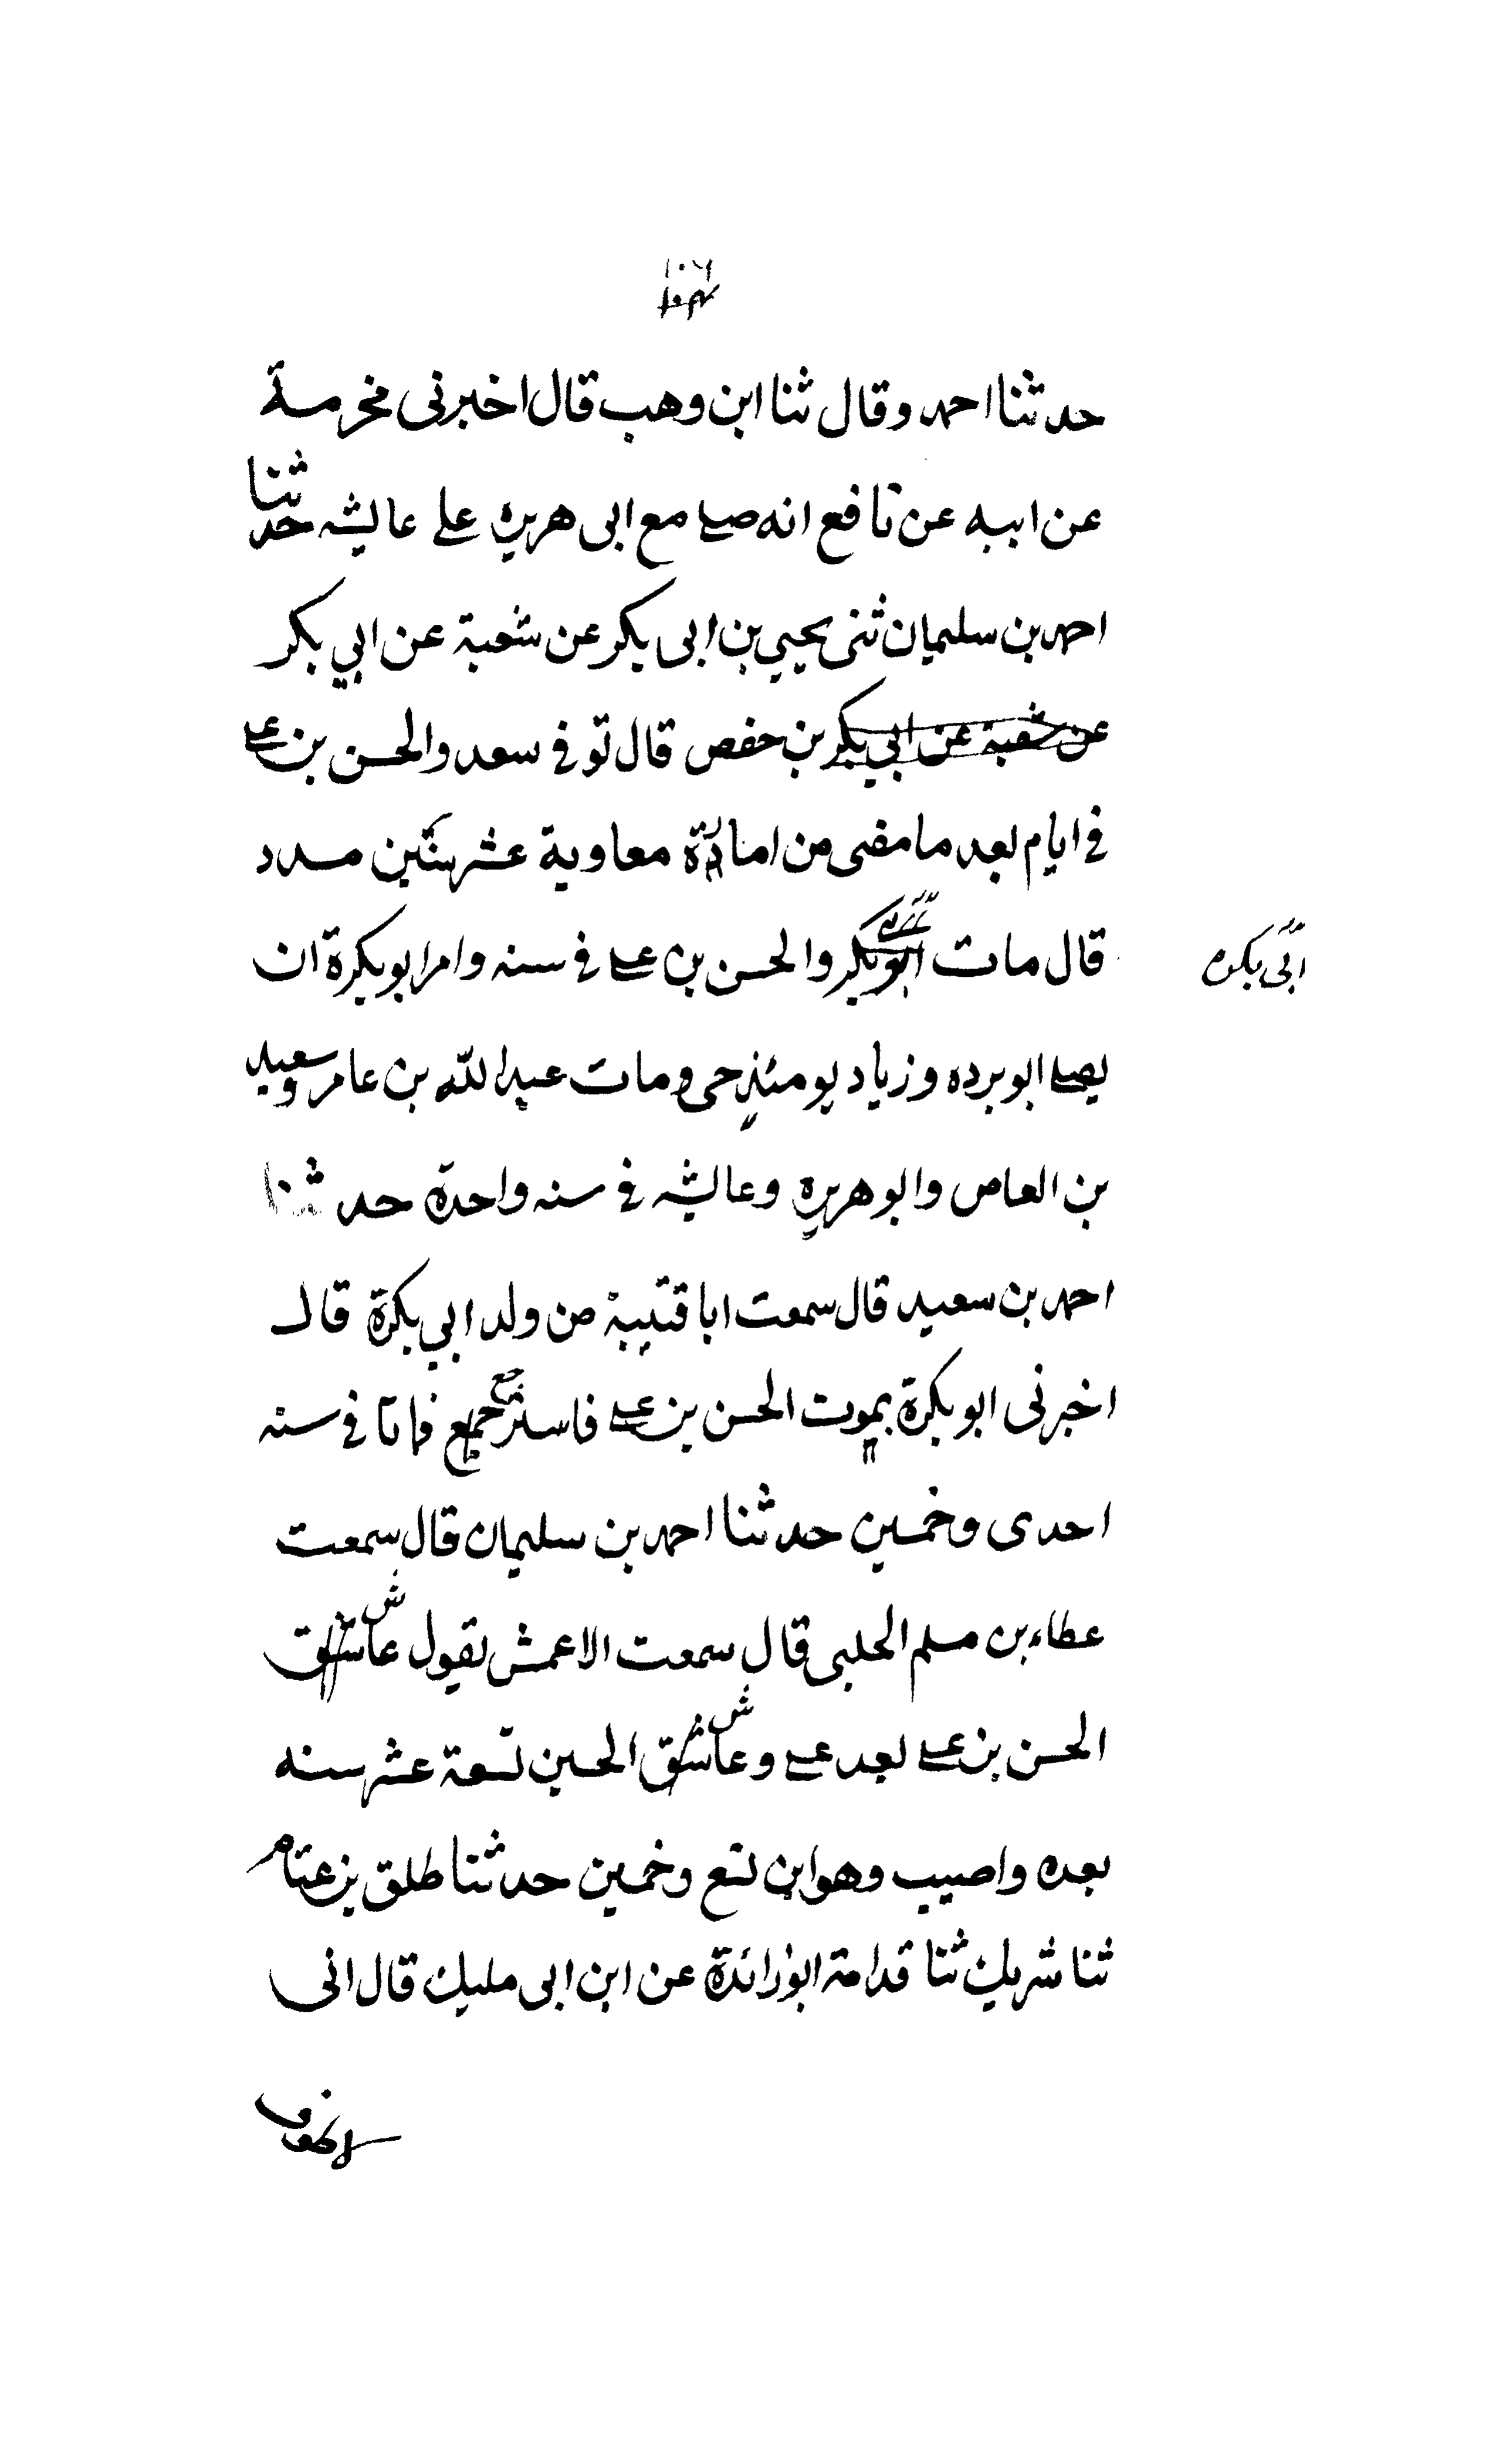 ١٠٦
حدثنا احمد وقال ثنا ابن وهب قال اخبرنى مخرمة
عن ابيه عن نافع انه صلى مع ابى هريره على عايشه حدثنا
احمد بن سليمان ثنى يحيي بن ابى بكر عن شعبة عن ابي بكر
عن شعبة عن ابي بكر بن حفص قال توفى سعد والحسن بن على
فى ايام بعد ما مضى من امارة معاوية عشر سنين مسدد
قال مات ابو بكر والحسن بن على فى سنه وامر ابو بكرة ان
ابى بكره
يصلى ابو برده وزياد يومئذ حى ومات عبد الله بن عامر وسعيد
بن العاص وابو هريرة وعايشه فى سنه واحدة حدثنا
احمد بن سعيد قال سمعت ابا قتيبة من ولد ابي بكرة قال
اخبرنى ابو بكرة بموت الحسن بن على فاسترجع فماتا فى سنه
احدى وخمسين حدثنا احمد بن سليمان قال سمعت
عطاء بن مسلم الحلبى قال سمعت الاعمش يقول عاش
الحسن بن على بعد على وعاش الحسين تسعة عشر سنه
بعده واصيب وهو ابن تسع وخمسين حدثنا طلق بن غنام
ثنا شريك ثنا قدامة ابو زائدة عن ابن ابى مليك قال انى